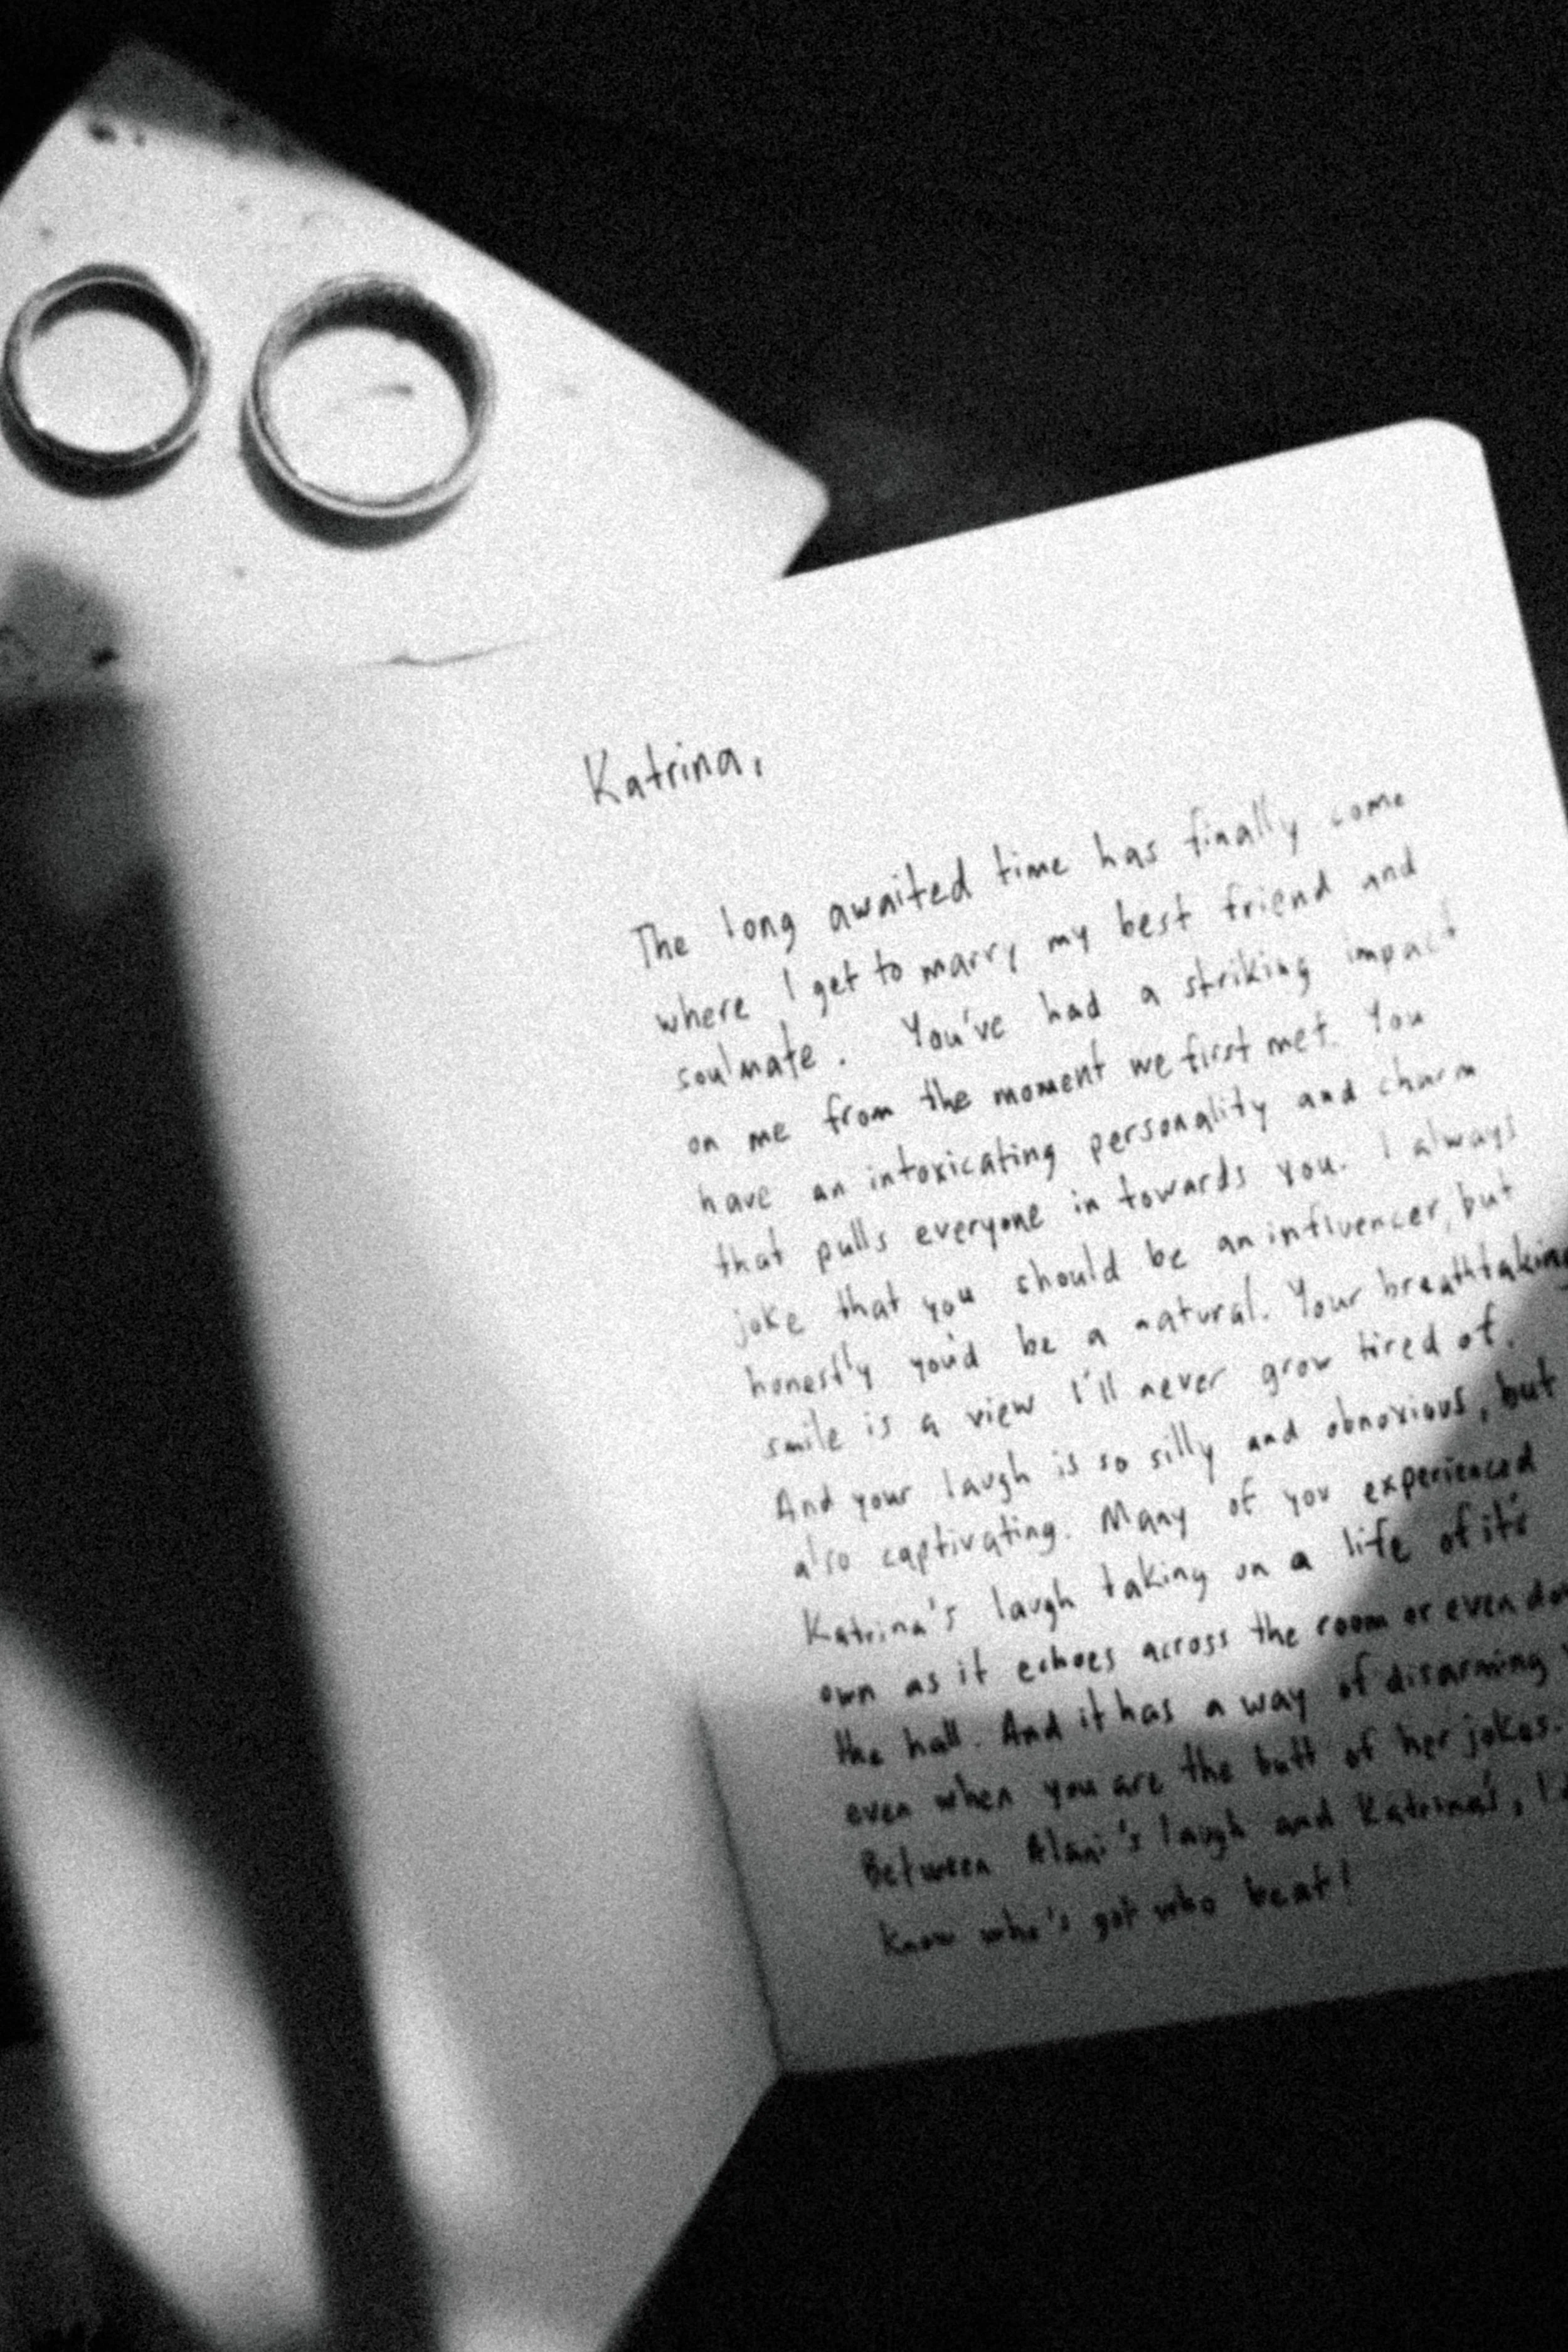 Katrina,
The long awaited time has finally come
where I get to marry my best friend and
soulmate. You've had a striking impact
on me from the moment we first met. You
have an intoxicating personality and charm
that pulls everyone in towards you. I always
joke that you should be an influencer, but
honestly you'd be a natural. Your breathtaking
smile is a view I'll never grow tired of.
And your laugh is so silly and obnoxious, but
also captivating. Many of you experienced
Katrina's laugh taking on a life of it's
own as it echoes across the room or even
the hall. And it has a way of disarming
even when you are the butt of her jokes.
Between Alani's laugh and Katrina's,
know who's got who beat!